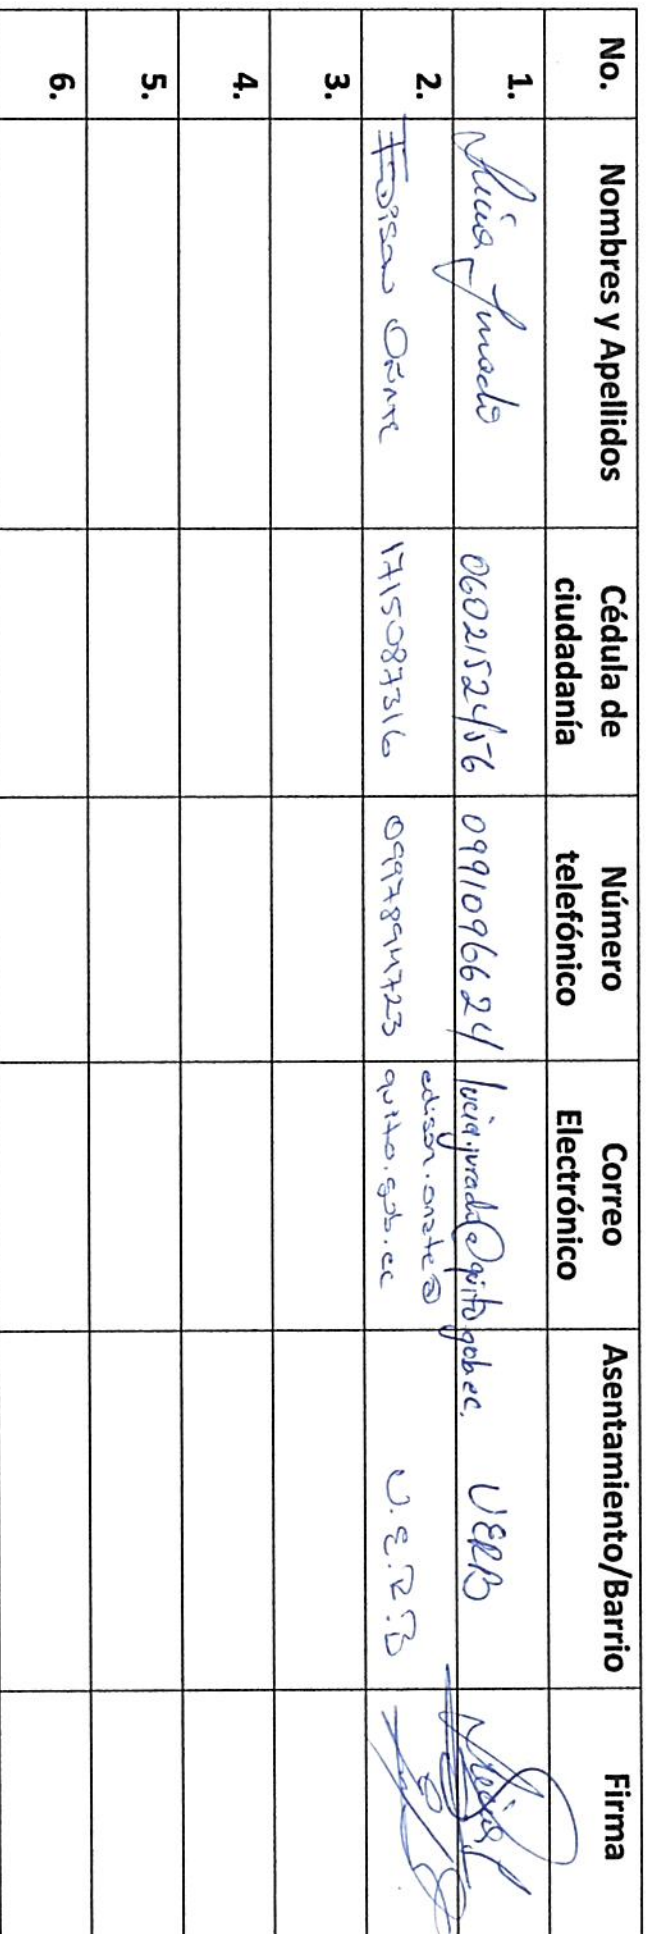 No. Nombres y Apellidos Cédula de ciudadanía Número telefónico Correo Electrónico Asentamiento/Barrio Firma
1. Lucia Jurado 0602152456 0991096624 lucia.jurado@quito.gob.ec. UERB
2. Edison Oñate 1715087316 0997894723 edison.onate@
quito.gob.ec U.E.R.B
3.
4.
5.
6.